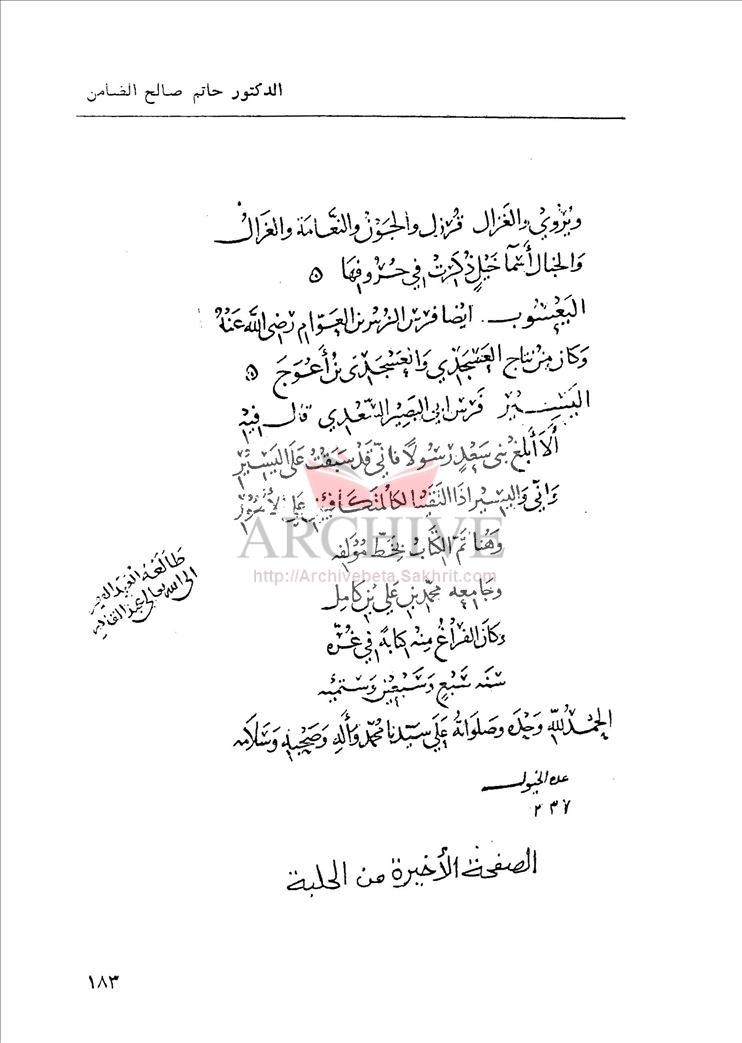 الدكتور حاتم صالح الضامن
ويُروى والغزال قُرزل والجَوْنُ والنعَّامة والغَزالُ
والخيال أسْما خَيْلٍ ذُكِرَتْ في حُرُوفِهَا
اليَعْسُوب. ايضا فرس الزبير بن العوّام رضي الله عَنْهُ
وَكَانَ مِنْ نتاج العَسْجَدِي وَالعَسْجَدِي بْنُ أَعْوَجَ
اليَسِيْر فَرَس ابي البَصِير السَّعْدِي قال فِيْهِ
أَلاَ أَبْلغ بَنى سَعْدٍ رَسُولاً فَانِّي قَدْ سَبَقْتُ عَلَى اليَسِيْر
وَانِّي وَاليَسِيْر اذَا التَقَيْنَا لكَالمُتَكَافِئِيْنَ عَلى الأُمُوْرِ
ARCHIVE
وَهُنا تمَّ الكِتَابُ بخَطِّ مُؤلفه
http://Archivebeta.Sakhrit.com
وَجَامِعِه محَّمد بْن عَلي بْن كَامِل
وَكَانَ الفَرَاغُ مِنْهُ كِتَابَةً فِي غُرَّه
سَنَه سَبْعٍ وَسَبْعِيْن وَسِتمِئه
الحَمْدُ لِلَّهِ وَحْدَه وَصَلوَاتهُ عَلَى سَيِّدِنَا محُمَّدٍ وَآلهِ وَصَحْبِهِ وَسَلَامه
طالعه العبد الفقير
الى الله تعالى عبد القادر
عدة الخيول
٢٣٧
الصفحة الأخيرة من الحلبة
١٨٣